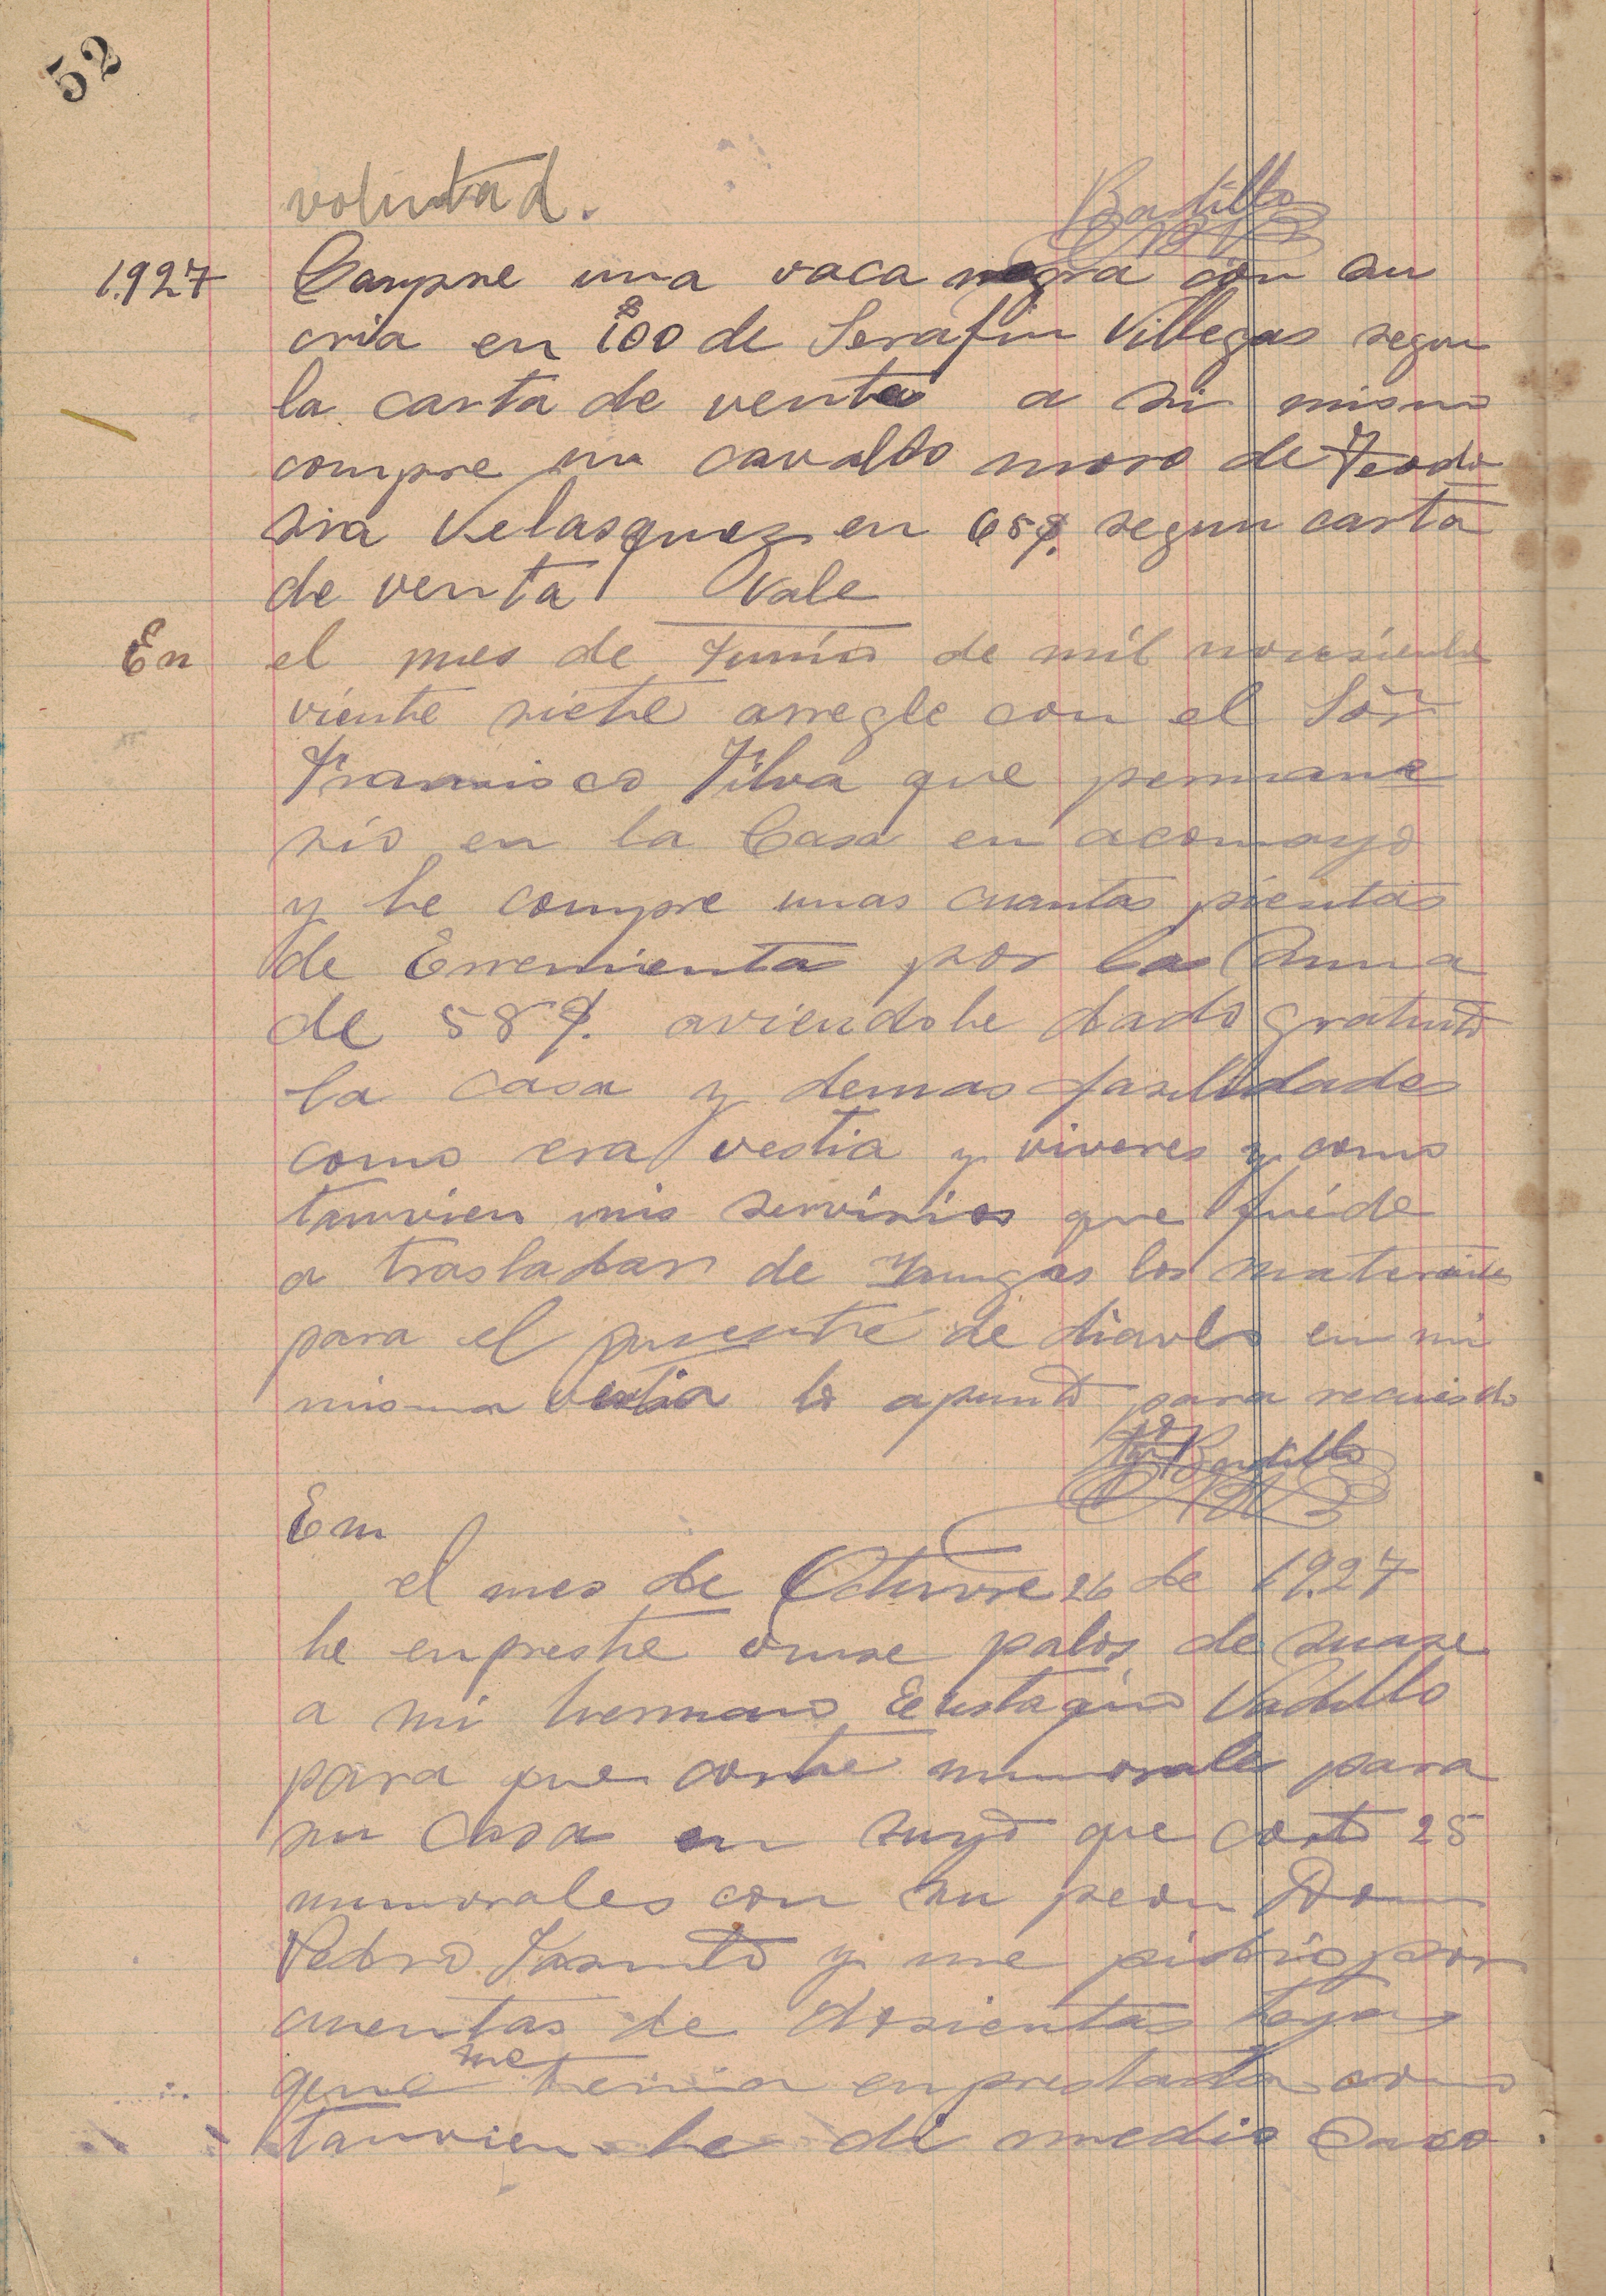 52
voluntad.
Bardillo
1927 Compre una vaca negra con su
cria en 100 de Serafin Villegas segun
la carta de venta a si mismo
compre un cavallo moro de Teodo
sia Velasquez en 65$. segun carta
de venta Vale
En el mes de Junio de mil novesientos
viente siete arregle con el Sor
Francisco Silva que permane
sio en la Casa en acomayo
y le compre unas cuantas pientas
de Erremienta por la suma
de 58$. aviendole dado gratuito
la casa y demas fasilidades
como era vestia y viveres y como
tanvien mis servisios que fué de
a trasladar de Yungas los materiales
para el puente de diavlo en mi
misma vestia lo apunto para recuerdo
Bardillo
En
el mes de Octuvre 26 de 1927
le enpreste onse palos de
a mi hermano Eustaquio Vadillo
para que corte munorales para
su Casa en suyo que corto 25
munorales con su peon Don
Pedro y me pidio por
cuentas de dosientas tejas
que me tenia enprestada como
tanvien le di medio